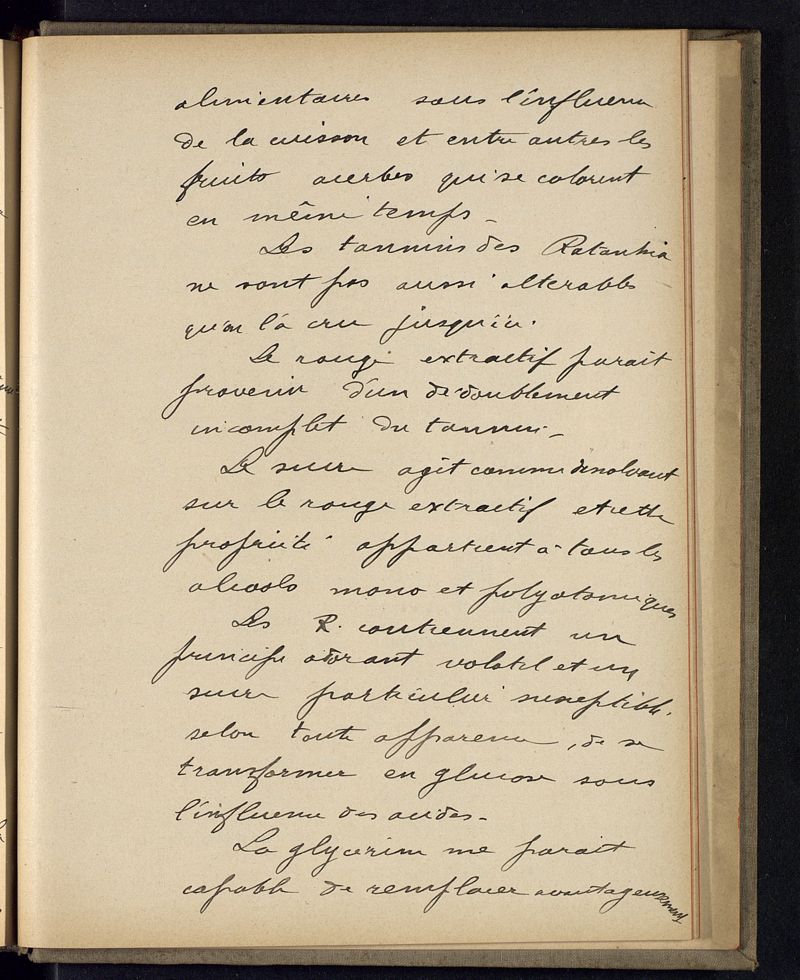 alimentaires sous l'influence
de la cuisson et entre autres les
fruits acerbes qui se colorent
en même temps –
Les tannins des Ratanhia
ne sont pas aussi altérables
qu'on l'a cru jusqu'ici.
Le rouge extractif parait
provenir d'un dédoublement
incomplet du tannin –
Le sucre agit comme dissolvant
sur le rouge extractif et cette
propriété appartient à tous les
alcools mono et polyatomiques
Les R. contiennent un
principe odorant volatil et un
sucre particulier susceptible,
selon toute apparence, de se
transformer en glucose sous
l'influence des acides –
La glycérine me parait
capable de remplacer avantageusement